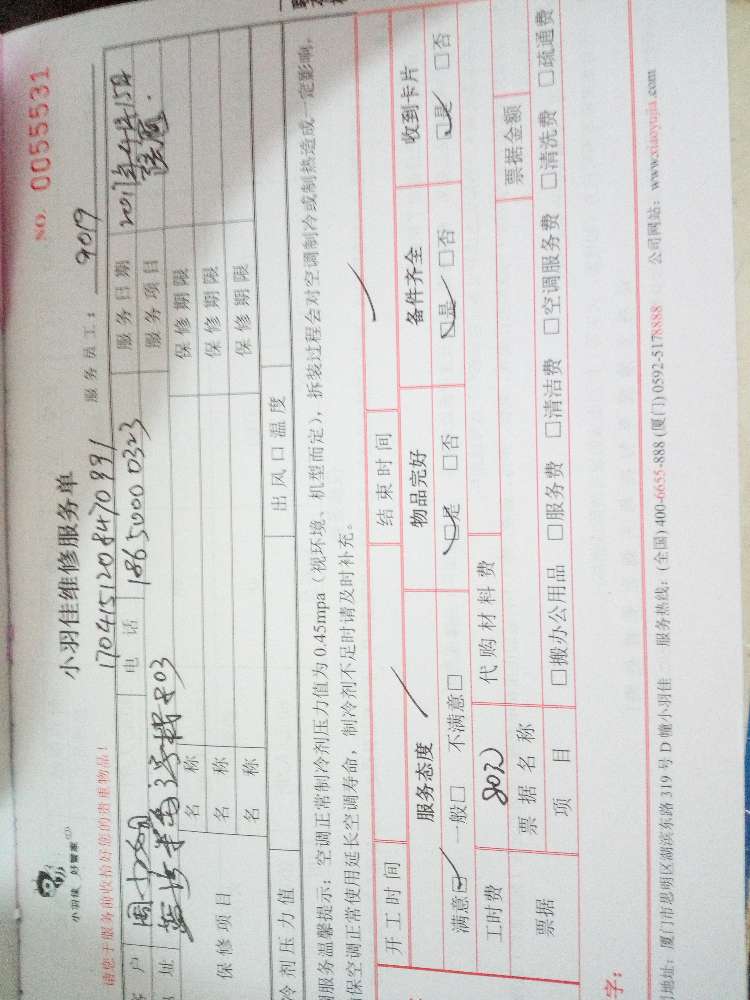 小羽佳 好管家
小羽佳维修服务单
NO. 0055531
请您于服务前收拾好您的贵重物品!
1704151208470991
服务员工: 9019
户 周 电话 18650000323 服务日期 2017年4月15日
址 3号楼803 服务项目
保修项目 名称 保修期限
名称 保修期限
名称 保修期限
冷剂压力值 出风口温度
调服务温馨提示:空调正常制冷剂压力值为0.45mpa(视环境、机型而定),拆装过程会对空调制冷或制热造成一定影响,
保空调正常使用延长空调寿命,制冷剂不足时请及时补充。
开工时间 结束时间
服务态度 物品完好 备件齐全 收到卡片
满意☑ 一般□ 不满意□ ☑是 □否 ☑是 □否 ☑是 □否
工时费 80元 代购材料费
票据 票据名称 票据金额
项目 □搬办公用品 □服务费 □清洁费 □空调服务费 □清洗费 □疏通费
字:
地址:厦门市思明区湖滨东路319号D幢小羽佳 服务热线:(全国)400-6655-888(厦门)0592-5178888 公司网站:www.xiaoyujia.com